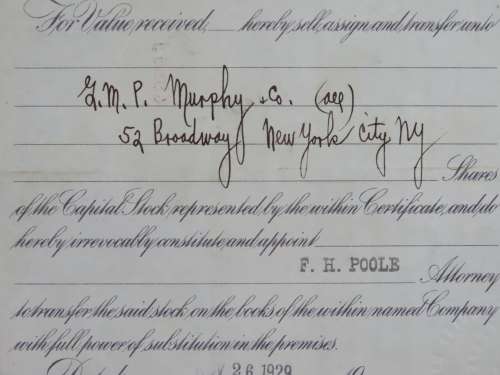 For Value, received, hereby sell, assign and transfer unto
G. M. P. Murphy & Co. (all)
52 Broadway New York City NY
Shares
of the Capital Stock represented by the within Certificate, and do
hereby irrevocably constitute and appoint
F. H. POOLE
Attorney
to transfer the said stock on the books of the within named Company
with full power of substitution in the premises.
Dated 26 1929